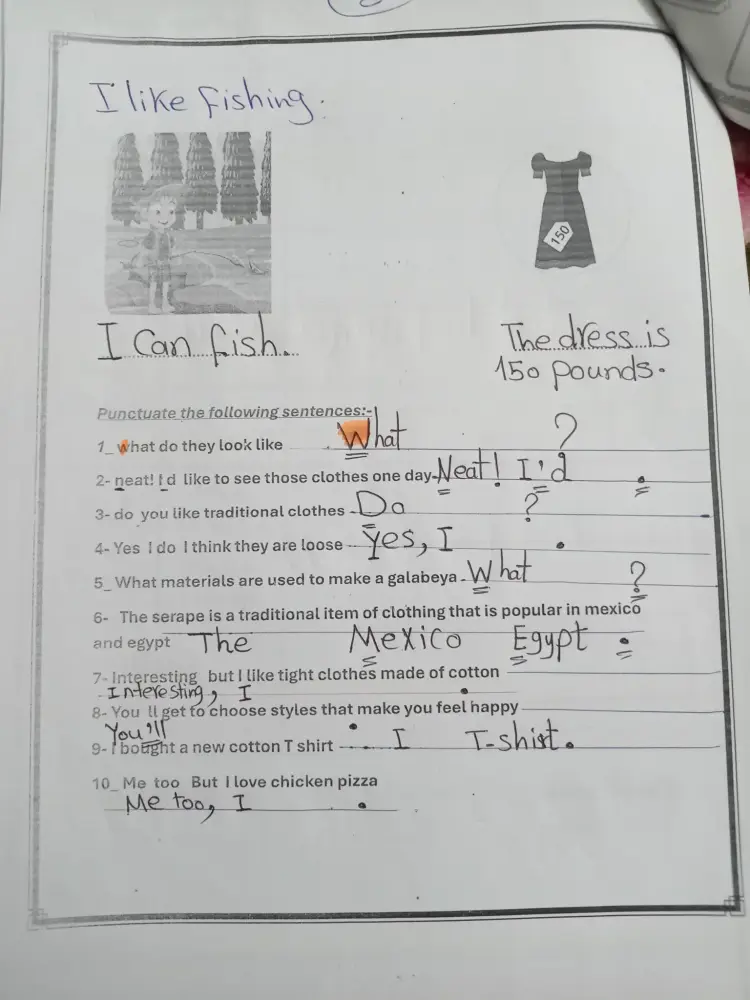 I like fishing.
150
I Can fish.
The dress is
150 pounds.
Punctuate the following sentences:-
1_ what do they look like What ?
2- neat! I d like to see those clothes one day Neat! I'd .
3- do you like traditional clothes Do ?
4- Yes I do I think they are loose Yes, I .
5_ What materials are used to make a galabeya What ?
6- The serape is a traditional item of clothing that is popular in mexico
and egypt The Mexico Egypt .
7- Interesting but I like tight clothes made of cotton
Interesting, I .
8- You ll get to choose styles that make you feel happy
You'll .
9- I bought a new cotton T shirt I T-shirt.
10_ Me too But I love chicken pizza
Me too, I .